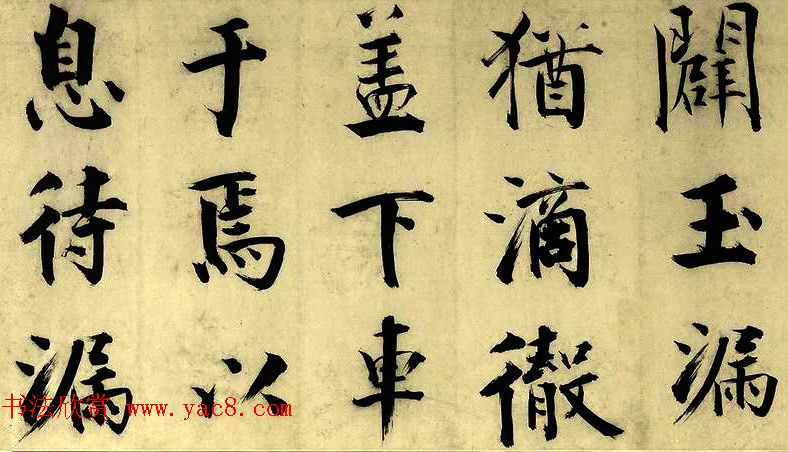 闢玉漏
猶滴徹
盖下車
于焉以
息待漏
书法欣赏 www.yac8.com